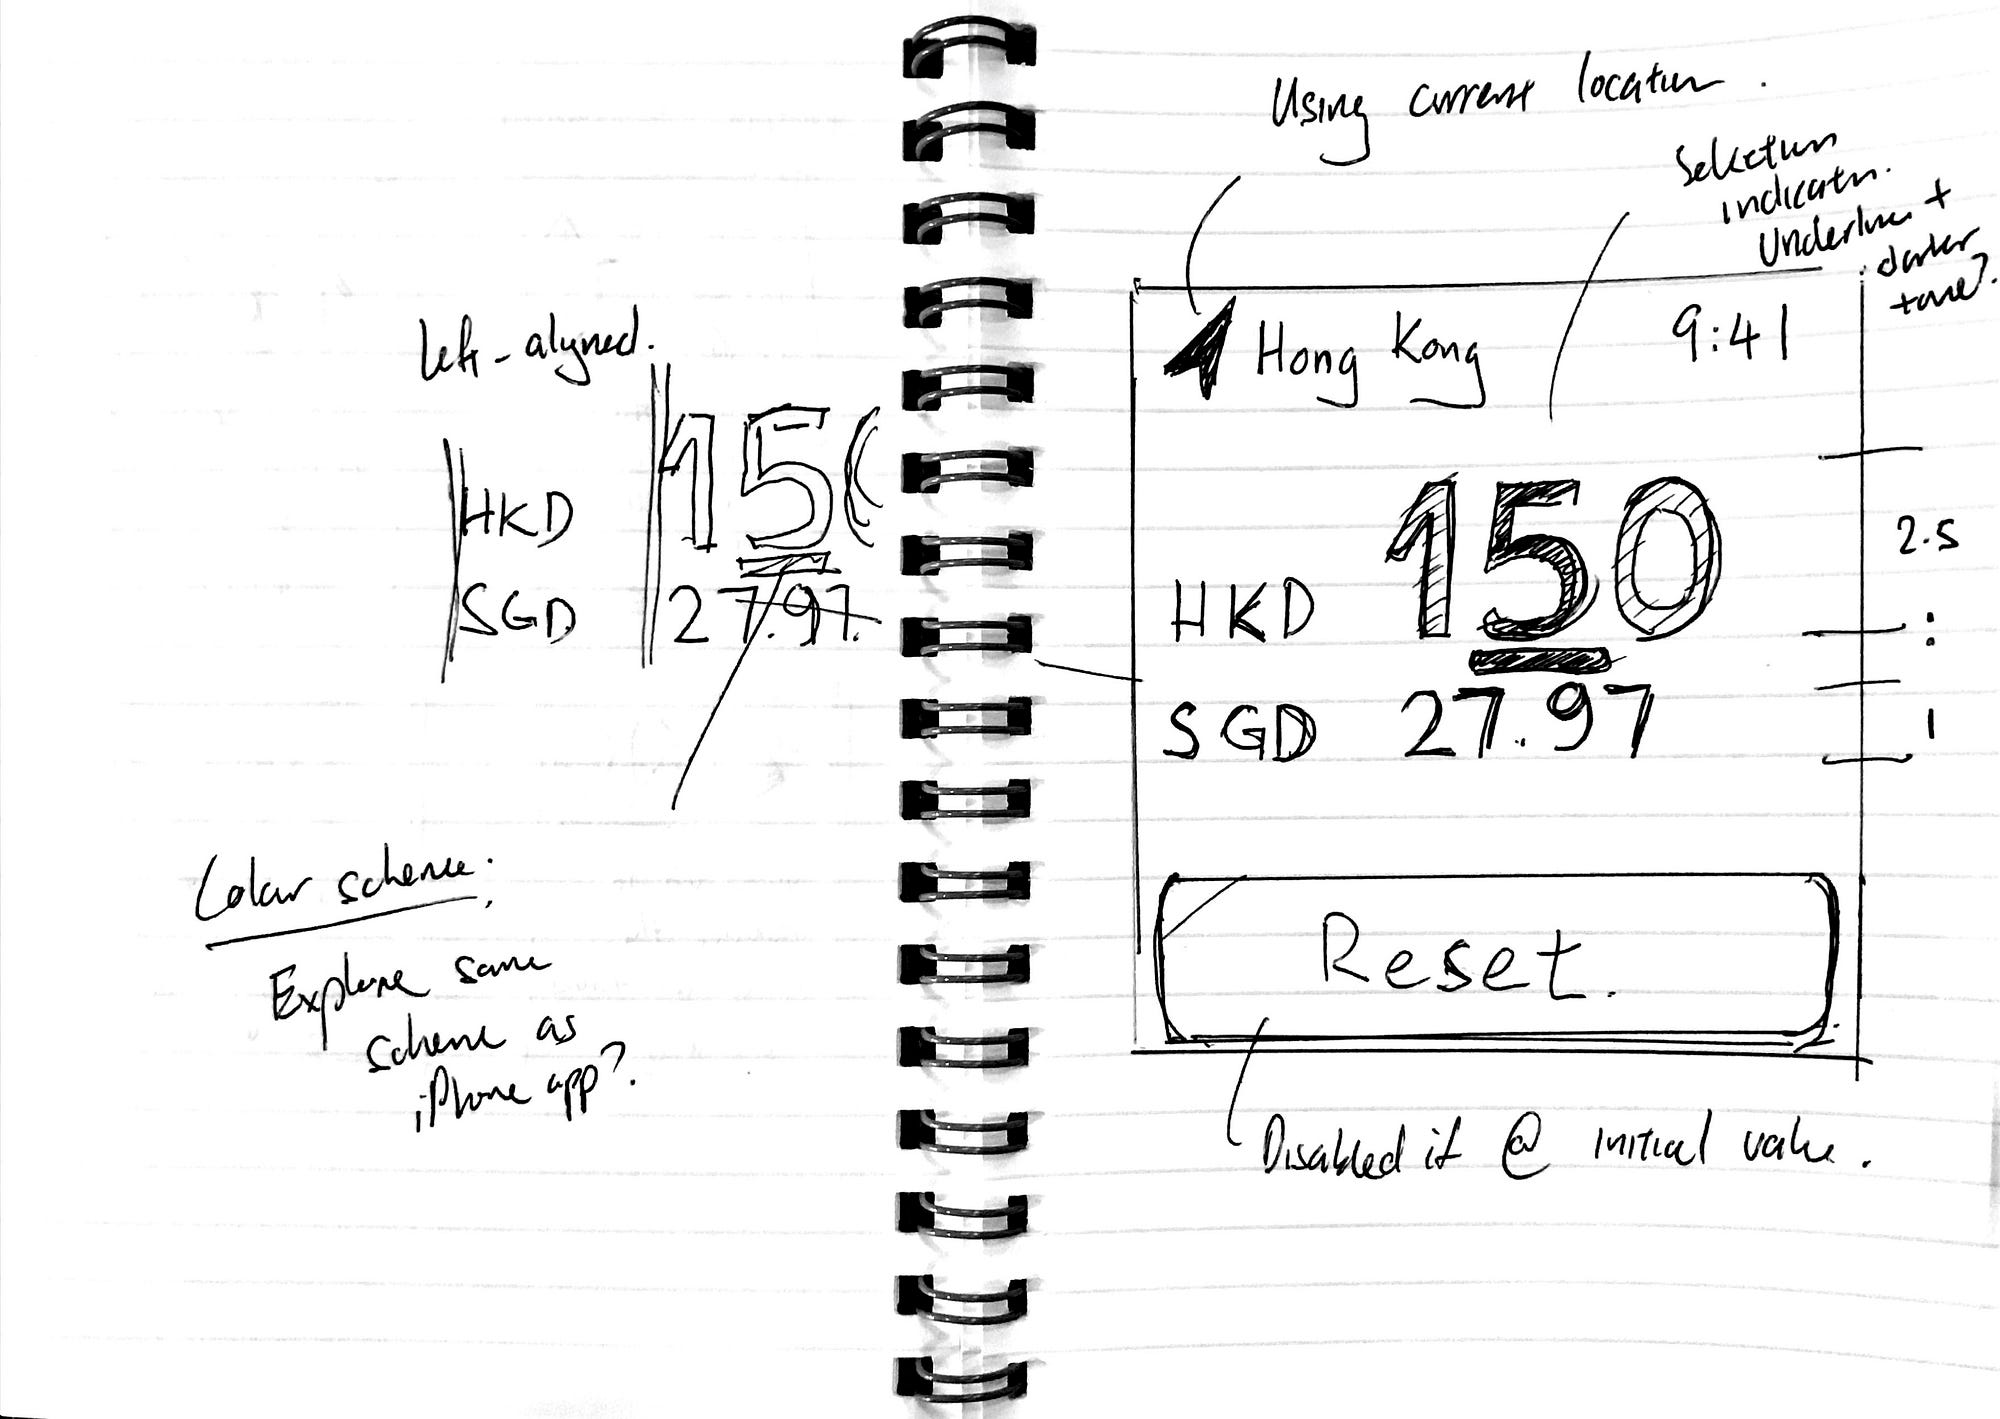 Left-aligned.
HKD 150
SGD 27.97.
Colour scheme:
Explore same
scheme as
iPhone app?
Using current location.
Selection
indicator.
Underline +
darker
tone?
Hong Kong 9:41
HKD 150
2.5
:
SGD 27.97
1
Reset.
Disabled if @ initial value.